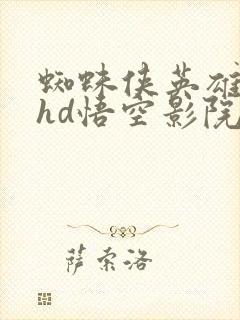 蜘蛛侠英雄
hd悟空影院
萨索洛